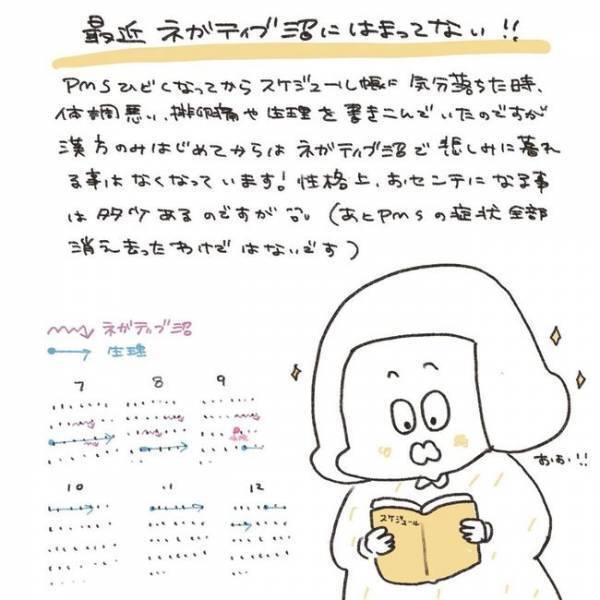 最近 ネガティブ沼にはまってない!!
PMSひどくなってからスケジュール帳に気分落ちた時、
体調悪い、排卵痛や生理を書きこんでいたのですが
漢方のみはじめてからは ネガティブ沼で悲しみに暮れ
る事はなくなっています!性格上、おセンチになる事
は多々あるのですが (あとPMSの症状全部
消え去ったわけではないです)
ネガティブ沼
生理
7 8 9
10 11 12
おぉ!!
スケジュール